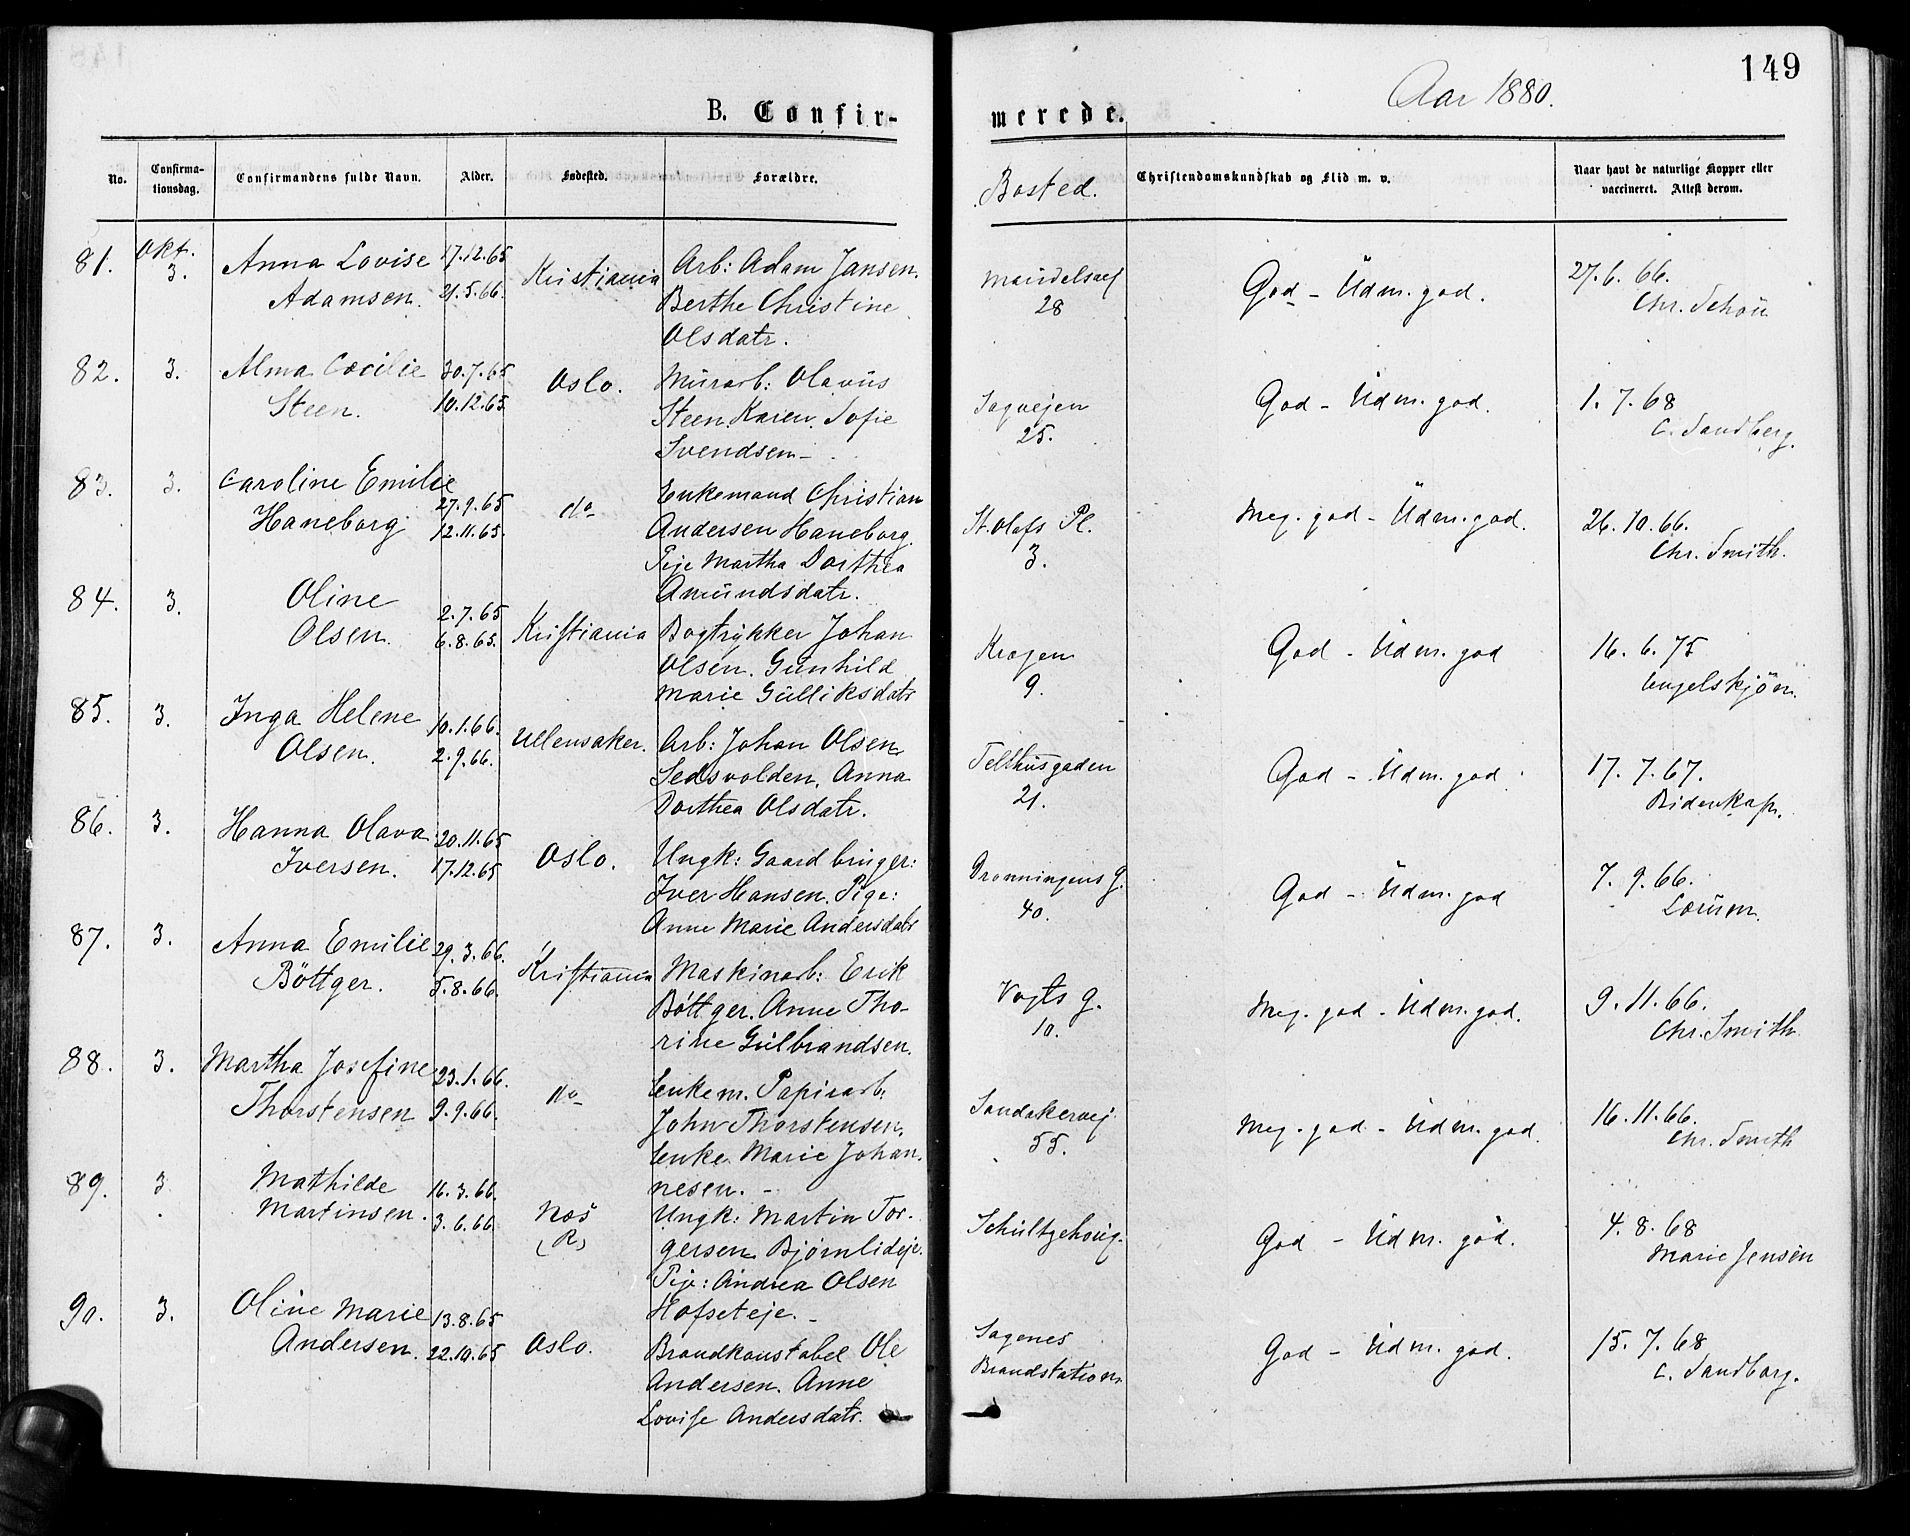 149
Aar 1880.
B. Confir-
merede.
No.
Confirma-
tionsdag.
Confirmandens fulde Navn.
Alder.
Fødested.
Forældre.
Bosted.
Christendomskundskab og Flid m. v.
Naar havt de naturlige Kopper eller
vaccineret. Attest derom.
81. Okt. 3. Anna Lovise 17.12.65 Kristiania Arb: Adam Jansen. Maridelsvej God - Udm. god. 27.6.66.
Adamsen. 21.5.66. Berthe Christine 28 Chr. Schou
Olsdatr.
82. 3. Alma Cæcilie 30.7.65 Oslo. Murarb: Olavus Sagvejen God - Udm. god. 1.7.68
Steen. 10.12.65 Steen Karen Sofie 25. C. Sandberg.
Svendsen -
83. 3. Caroline Emilie 27.9.65 do Enkemand Christian St. Olafs Pl. Meg. god - Udm. god. 26.10.66.
Haneborg 12.11.65. Andersen Haneborg. 3. Chr. Smith.
Pige Martha Dorthea
Amundsdatr.
84. 3. Oline 2.7.65 Kristiania Bogtrykker Johan Krogen God - Udm. god 16.6.75
Olsen. 6.8.65. Olsen. Gunhild 9. Engelskjøn.
Marie Gulliksdatr
85. 3. Inga Helene 10.1.66. Ullensaker. Arb: Johan Olsen Telthusgaden God - Udm. god 17.7.67.
Olsen. 2.9.66. Sedsvolden. Anna 21. Bidenkap.
Dorthea Olsdatr.
86. 3. Hanna Olava 20.11.65 Oslo. Ungk: Gaardbruger: Dronningens G. God - Udm. god 7.9.66.
Iversen. 17.12.65 Iver Hansen. Pige: 40. Lærum.
Anne Marie Andersdatr
87. 3. Anna Emilie 29.3.66. Kristiania Maskinarb: Erik Vogts g. Meg. god - Udm. god. 9.11.66.
Böttger. 5.8.66. Böttger. Anne Tho- 10. Chr. Smith
rine Gulbrandsen.
88. 3. Martha Josefine 23.1.66. do Enkem. Papirarb. Sandakervej Meg. god - Udm. god. 16.11.66.
Thorstensen 9.9.66. John Thorstensen. 55. Chr. Smith
Enke Marie Johan-
nesen. -
89. 3. Mathilde 16.3.66. Næs Ungk: Martin Tor- Schultzehaug. God - Udm. god. 4.8.68
Martinsen. 3.6.66 (R) gersen Bjørnlideje. Marie Jensen
Pige: Andrea Olsen
Hofseteje. -
90. 3. Oline Marie 13.8.65 Oslo. Brandkonstabel Ole Sagenes God - Udm. god. 15.7.68
Andersen. 22.10.65 Andersen. Anne Brandstation C. Sandberg.
Lovise Andersdatr.